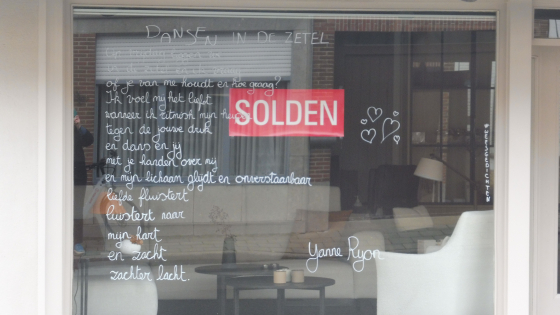 DANSEN IN DE ZETEL
of je van me houdt en hoe graag?
Ik voel mij het liefst
wanneer ik ritmisch mijn heupen
tegen de jouwe druk
en dans en jij
met je handen over mij
en mijn lichaam glijdt en onverstaanbaar
liefde fluistert
luistert naar
mijn hart
en zacht
zachter lacht.
SOLDEN
Yanne Ryon